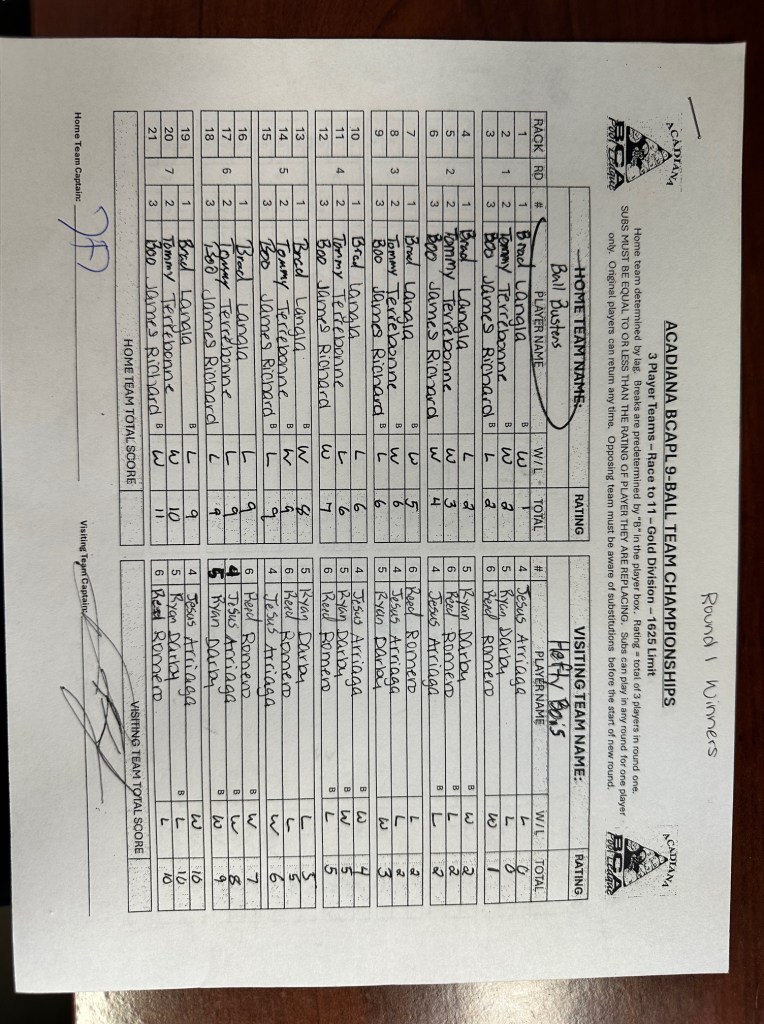 Round 1 Winners
ACADIANA BCA Pool League
ACADIANA BCAPL 9-BALL TEAM CHAMPIONSHIPS
ACADIANA BCA Pool League
3 Player Teams – Race to 11 – Gold Division – 1625 Limit
Home team determined by lag. Breaks are predetermined by "B" in the player box. Rating = total of 3 players in round one.
SUBS MUST BE EQUAL TO OR LESS THAN THE RATING OF PLAYER THEY ARE REPLACING. Subs can play in any round for one player
only. Original players can return any time. Opposing team must be aware of substitutions before the start of new round.
HOME TEAM NAME: RATING VISITING TEAM NAME: RATING
Ball Busters Hefty Bois
RACK RD # PLAYER NAME W/L TOTAL # PLAYER NAME W/L TOTAL
1 1 Brad Langla B W 1 4 Jesus Arriaga L 0
2 1 2 Tommy Terrebonne B W 2 5 Ryan Darby L 0
3 3 Boo James Richard B L 2 6 Reed Romero W 1
4 1 Brad Langla L 2 5 Ryan Darby B W 2
5 2 2 Tommy Terrebonne W 3 6 Reed Romero B L 2
6 3 Boo James Richard W 4 4 Jesus Arriaga B L 2
7 1 Brad Langla B W 5 6 Reed Romero L 2
8 3 2 Tommy Terrebonne B W 6 4 Jesus Arriaga L 2
9 3 Boo James Richard B L 6 5 Ryan Darby W 3
10 1 Brad Langla L 6 4 Jesus Arriaga B W 4
11 4 2 Tommy Terrebonne L 6 5 Ryan Darby B W 5
12 3 Boo James Richard W 7 6 Reed Romero B L 5
13 1 Brad Langla B W 8 5 Ryan Darby L 5
14 5 2 Tommy Terrebonne B W 9 6 Reed Romero L 5
15 3 Boo James Richard B L 9 4 Jesus Arriaga W 6
16 1 Brad Langla L 9 6 Reed Romero B W 7
17 6 2 Tommy Terrebonne L 9 4 Jesus Arriaga B W 8
18 3 Boo James Richard L 9 5 Ryan Darby B W 9
19 1 Brad Langla B L 9 4 Jesus Arriaga W 10
20 7 2 Tommy Terrebonne W 10 5 Ryan Darby B L 10
21 3 Boo James Richard B W 11 6 Reed Romero L 10
HOME TEAM TOTAL SCORE VISITING TEAM TOTAL SCORE
Home Team Captain: Visiting Team Captain: